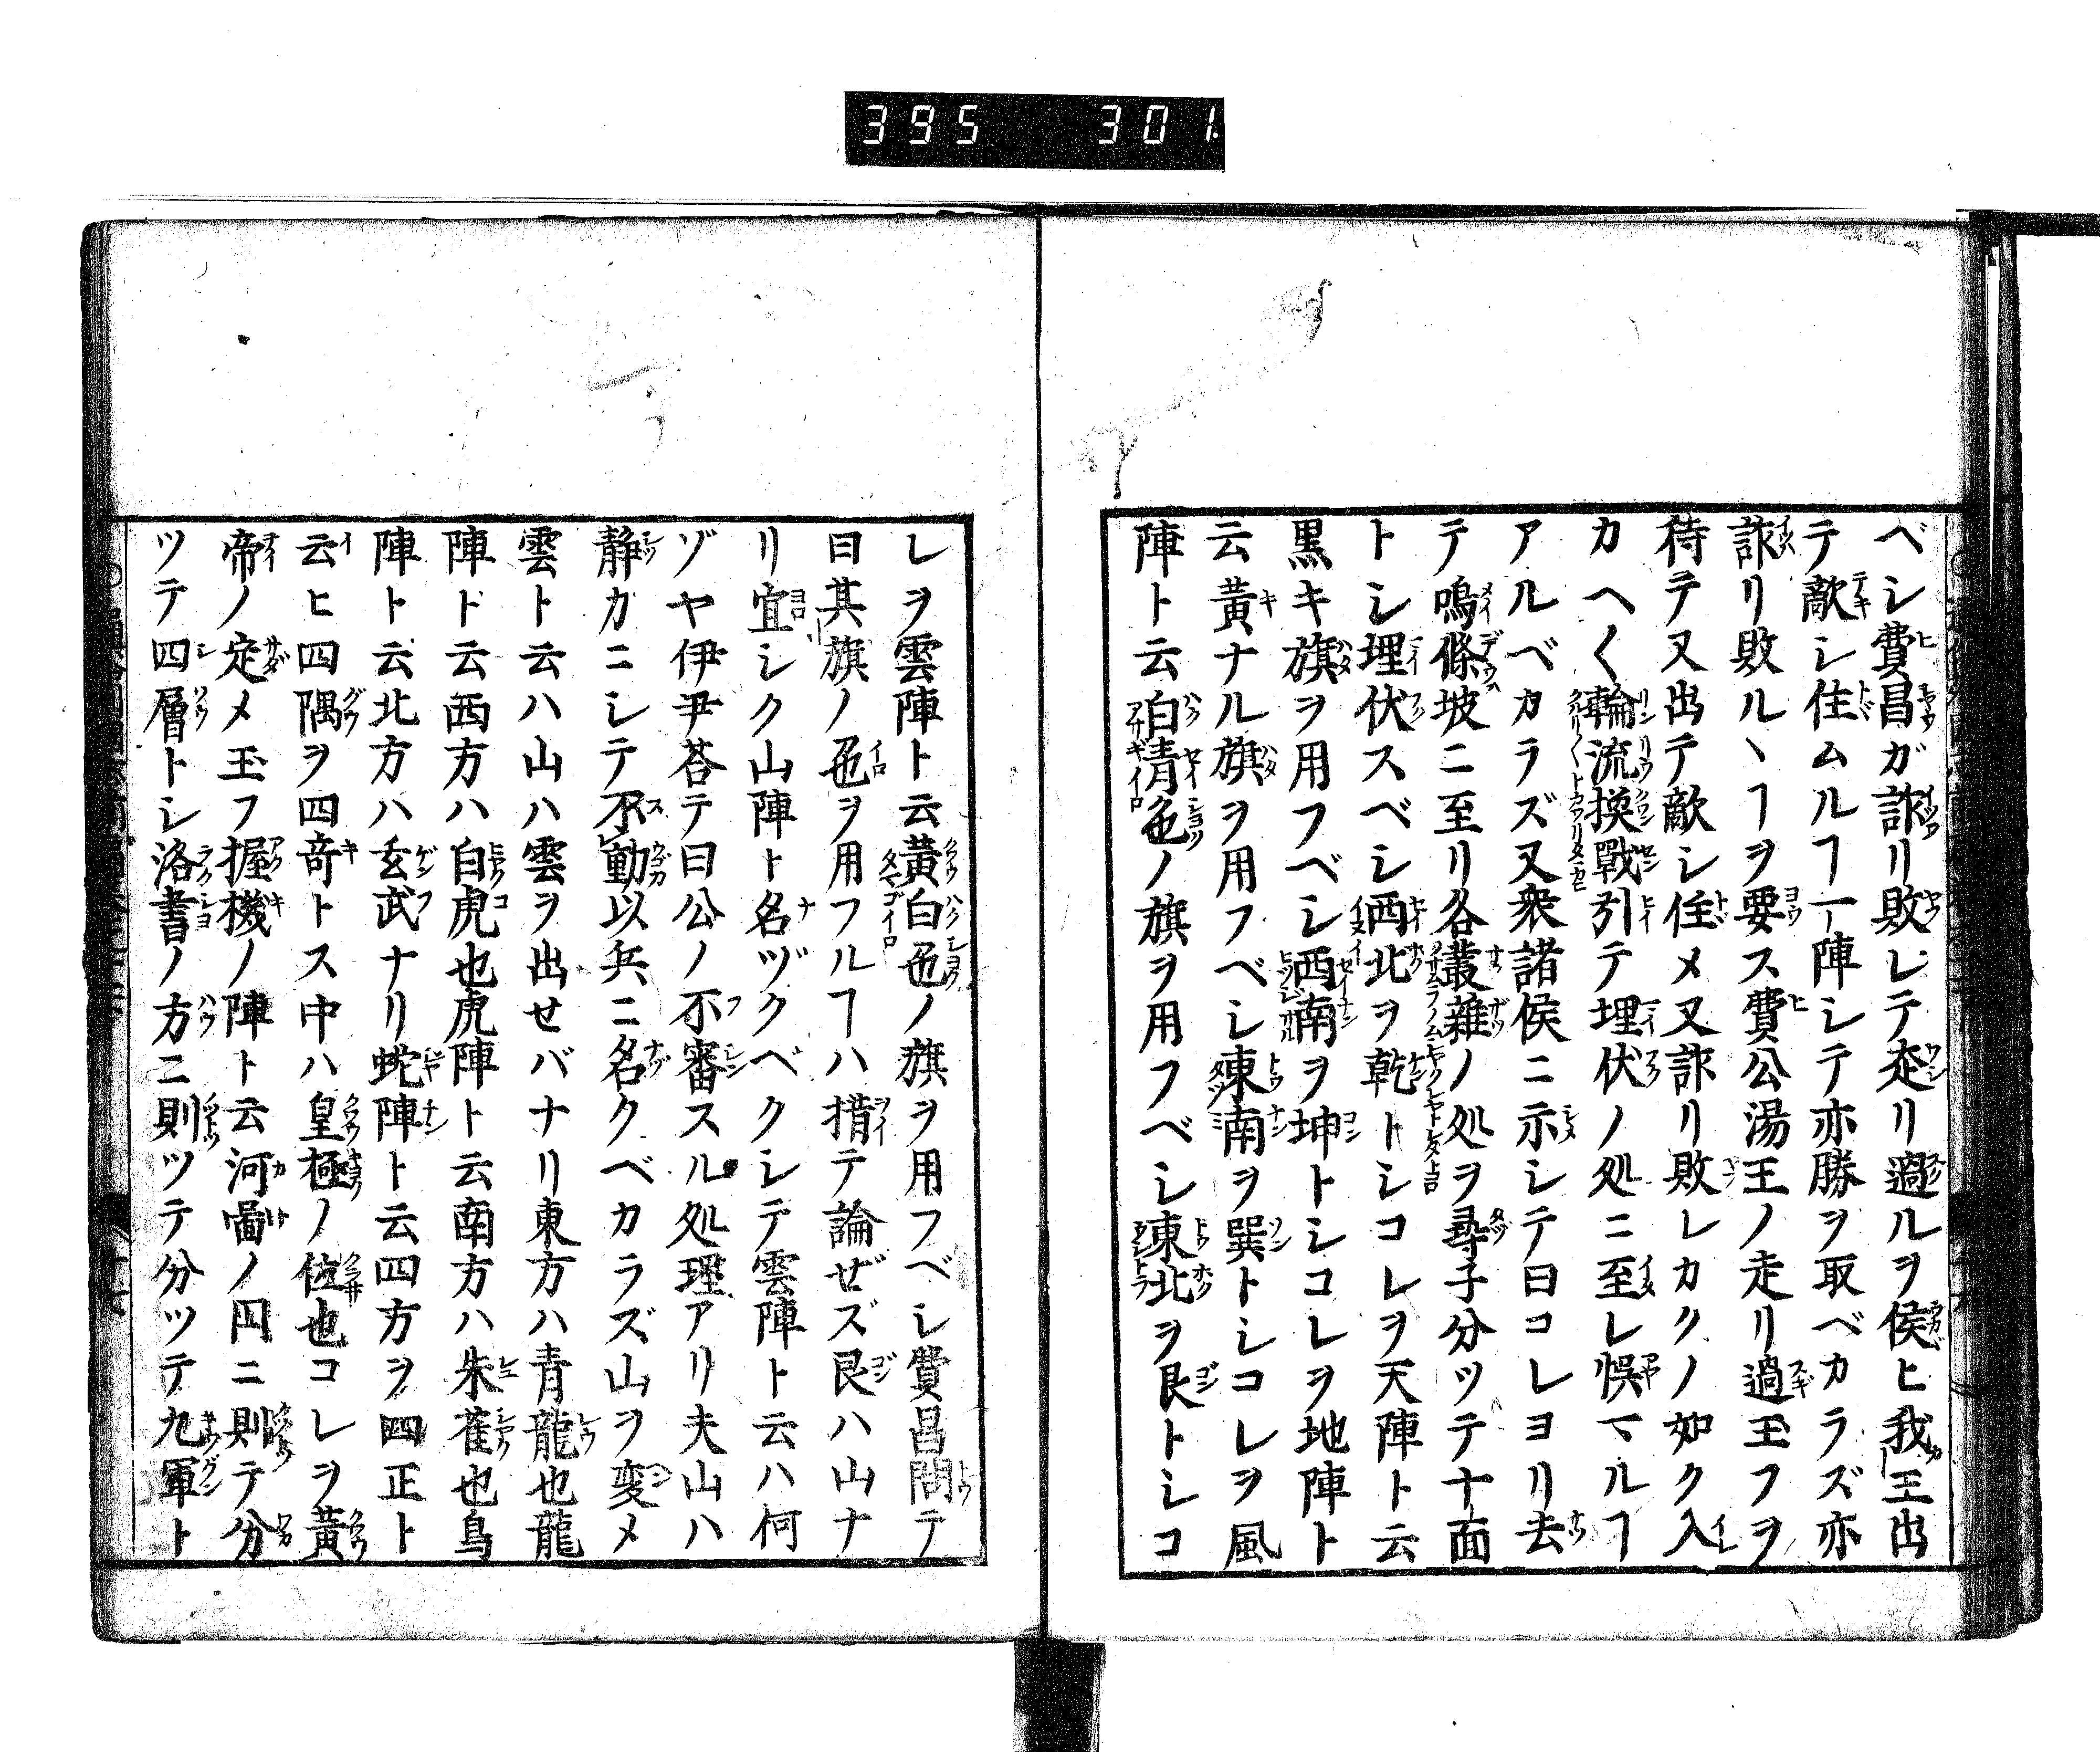 395 301
ベシ費昌ガ詐リ敗レテ走リ過ルヲ侯ヒ我王出
テ敵シ住ムルヿ一陣シテ亦勝ヲ取ベカラズ亦
詐リ敗ルヽヿヲ要ス費公湯王ノ走リ過玉フヲ
待テ又出テ敵シ住メ又詐リ敗レカクノ如ク入
カヘ〱輪流換戰引テ埋伏ノ処ニ至レ悞マルヿ
アルベカラズ又衆諸侯ニ示シテ曰コレヨリ去
テ鳴條坡ニ至リ各叢雜ノ処ヲ尋子分ツテ十面
トシ埋伏スベシ西北ヲ乾トシコレヲ天陣ト云
黒キ旗ヲ用フベシ西南ヲ坤トシコレヲ地陣ト
云黃ナル旗ヲ用フベシ東南ヲ巽トシコレヲ風
陣ト云白青色ノ旗ヲ用フベシ東北ヲ艮トシコ
レヲ雲陣ト云黃白色ノ旗ヲ用フベシ費昌問テ
曰其旗ノ色ヲ用フルヿハ措テ論ゼズ艮ハ山ナ
リ宜シク山陣ト名ヅクベクシテ雲陣ト云ハ何
ゾヤ伊尹荅テ曰公ノ不審スル処理アリ夫山ハ
静カニシテ不動以兵ニ名クベカラズ山ヲ変メ
雲ト云ハ山ハ雲ヲ出セバナリ東方ハ青龍也龍
陣ト云西方ハ白虎也虎陣ト云南方ハ朱雀也鳥
陣ト云北方ハ玄武ナリ蛇陣ト云四方ヲ四正ト
云ヒ四隅ヲ四竒トス中ハ皇極ノ位也コレヲ黃
帝ノ定メ玉フ握機ノ陣ト云河圖ノ円ニ則テ分
ツテ四層トシ洛書ノ方ニ則ツテ分ツテ九軍ト